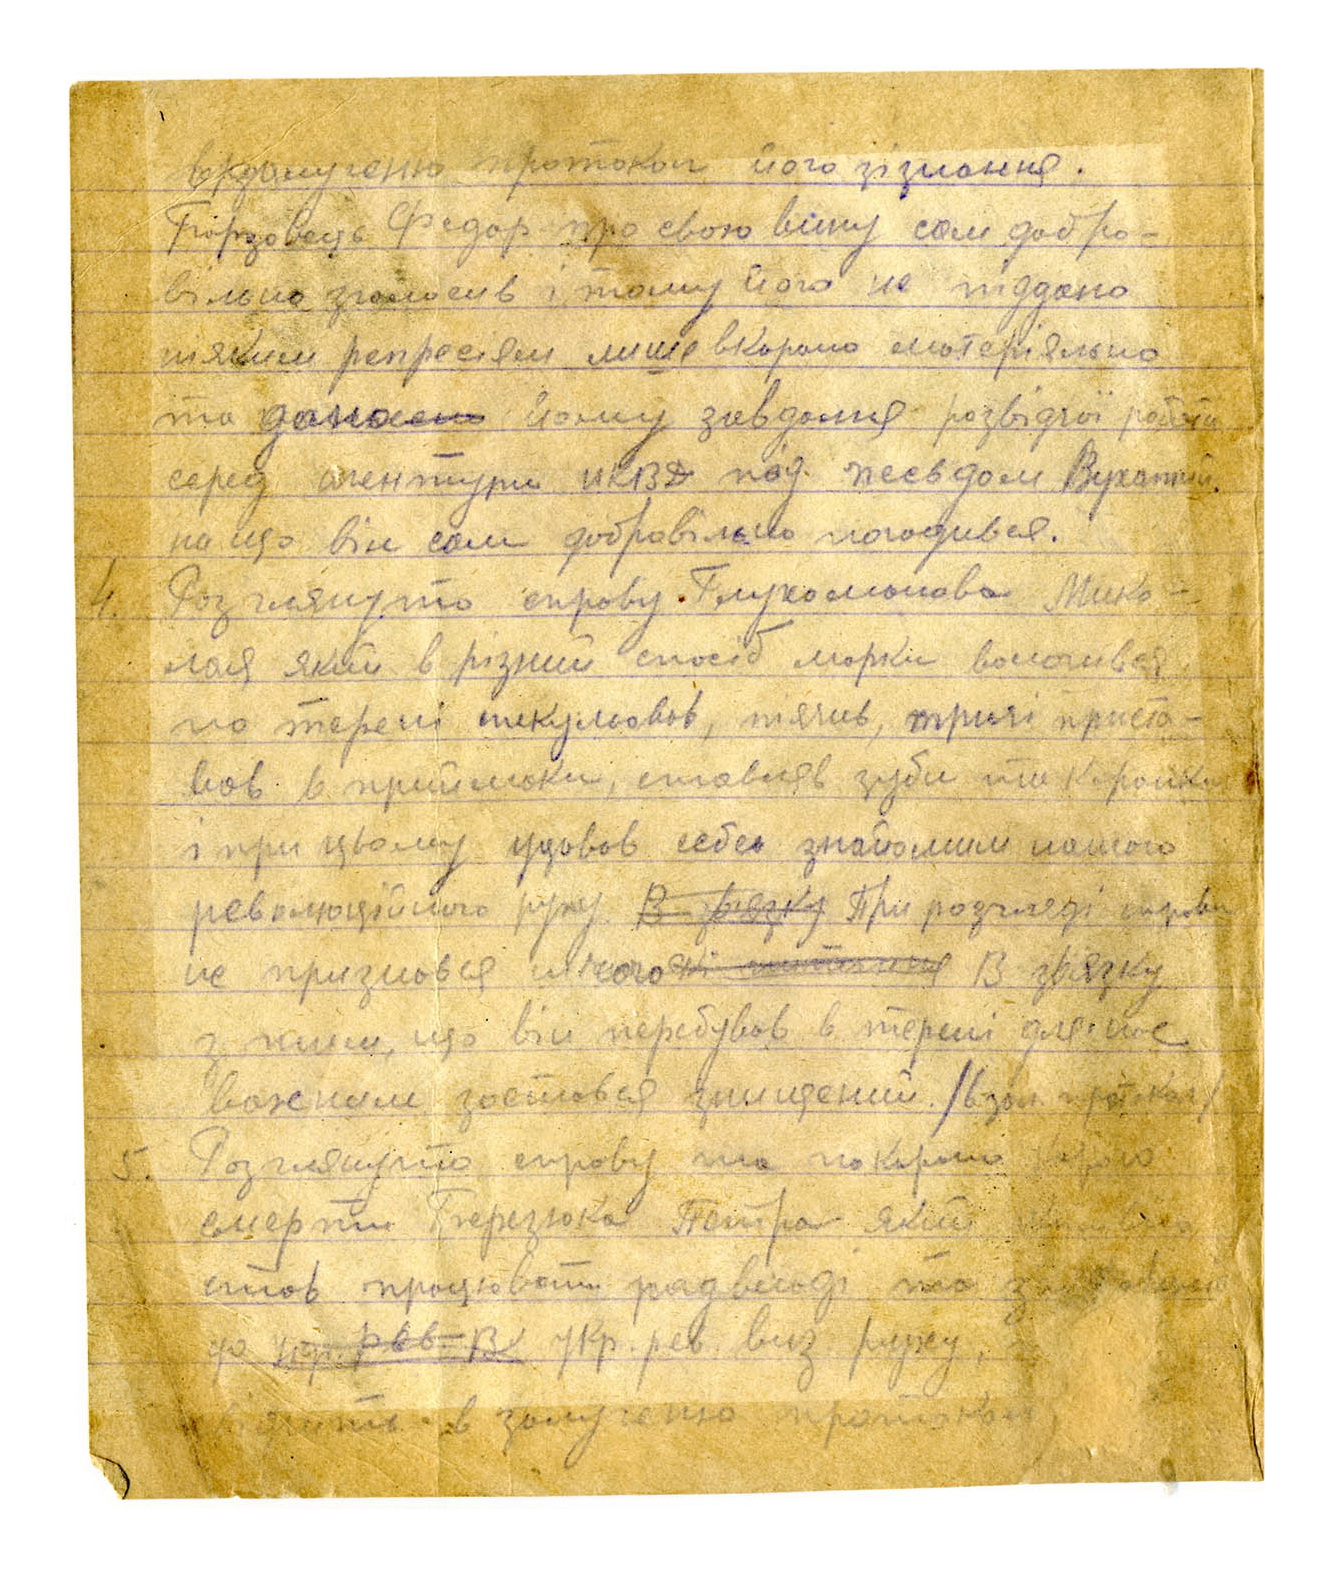 в залученю протокол його зізнання.
Федар про свою вину сам добро-
вільно зголосив і тому його не піддано
ніяким репресіям лише вкарано матеріяльно
та дано йому завдання розвідчої роботи
серед агентури НКВД під псевдом
на що він сам добровільно погодився.
4. Розглянуто справу Глухоманова Мико-
лая який в різний спосіб марки волочився
по терені спекулював, пячив, тричі приста-
вав в приймаки, ставляв зуби та коронки
і при цьому удавав себе знайомим нашого
революційного руху В звязку При розгляді справи
не признався нічого В звязку
з тим, що він перебував в терені для нас
важним зостався знищений. /в зал. протокол/
5. Розглянуто справу та покарано карою
смерти Петра який
став працювати радвладі та
до укр. рев. В укр. рев. виз. руху,
в залученю протокол